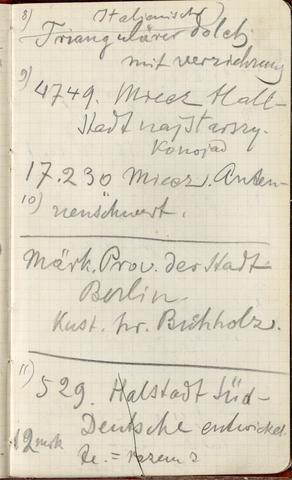 8) Italienische(r)
Triangulärer Dolch
mit verzichnung
9) 4749. Miecz Hall-
Stadt najstarszy.
Konojad
17.230 Miecz. Anten-
10) nenschwert.
Märk. Prov. der Stadt
Berlin.
Kust. hr. Buchholz.
11) 529. Halstadt Süd-
Deutsche entwickel.
12 mrk = razem 2